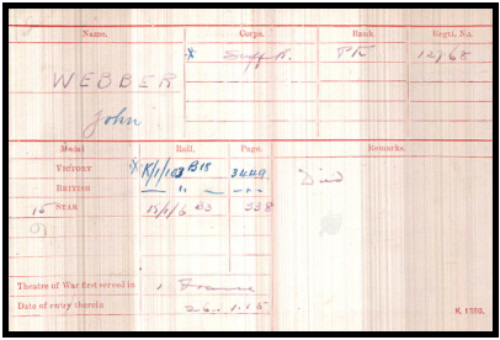 Name. Corps. Rank Regtl. No.
WEBBER * Suff R. Pte
John
Medal Roll. Page. Remarks.
VICTORY * K/1/103 B18 3449. Died
BRITISH — " — — " —
15 STAR K/1/6 B3 338
Theatre of War first served in , France
Date of entry therein 26.1.15
K. 1380.